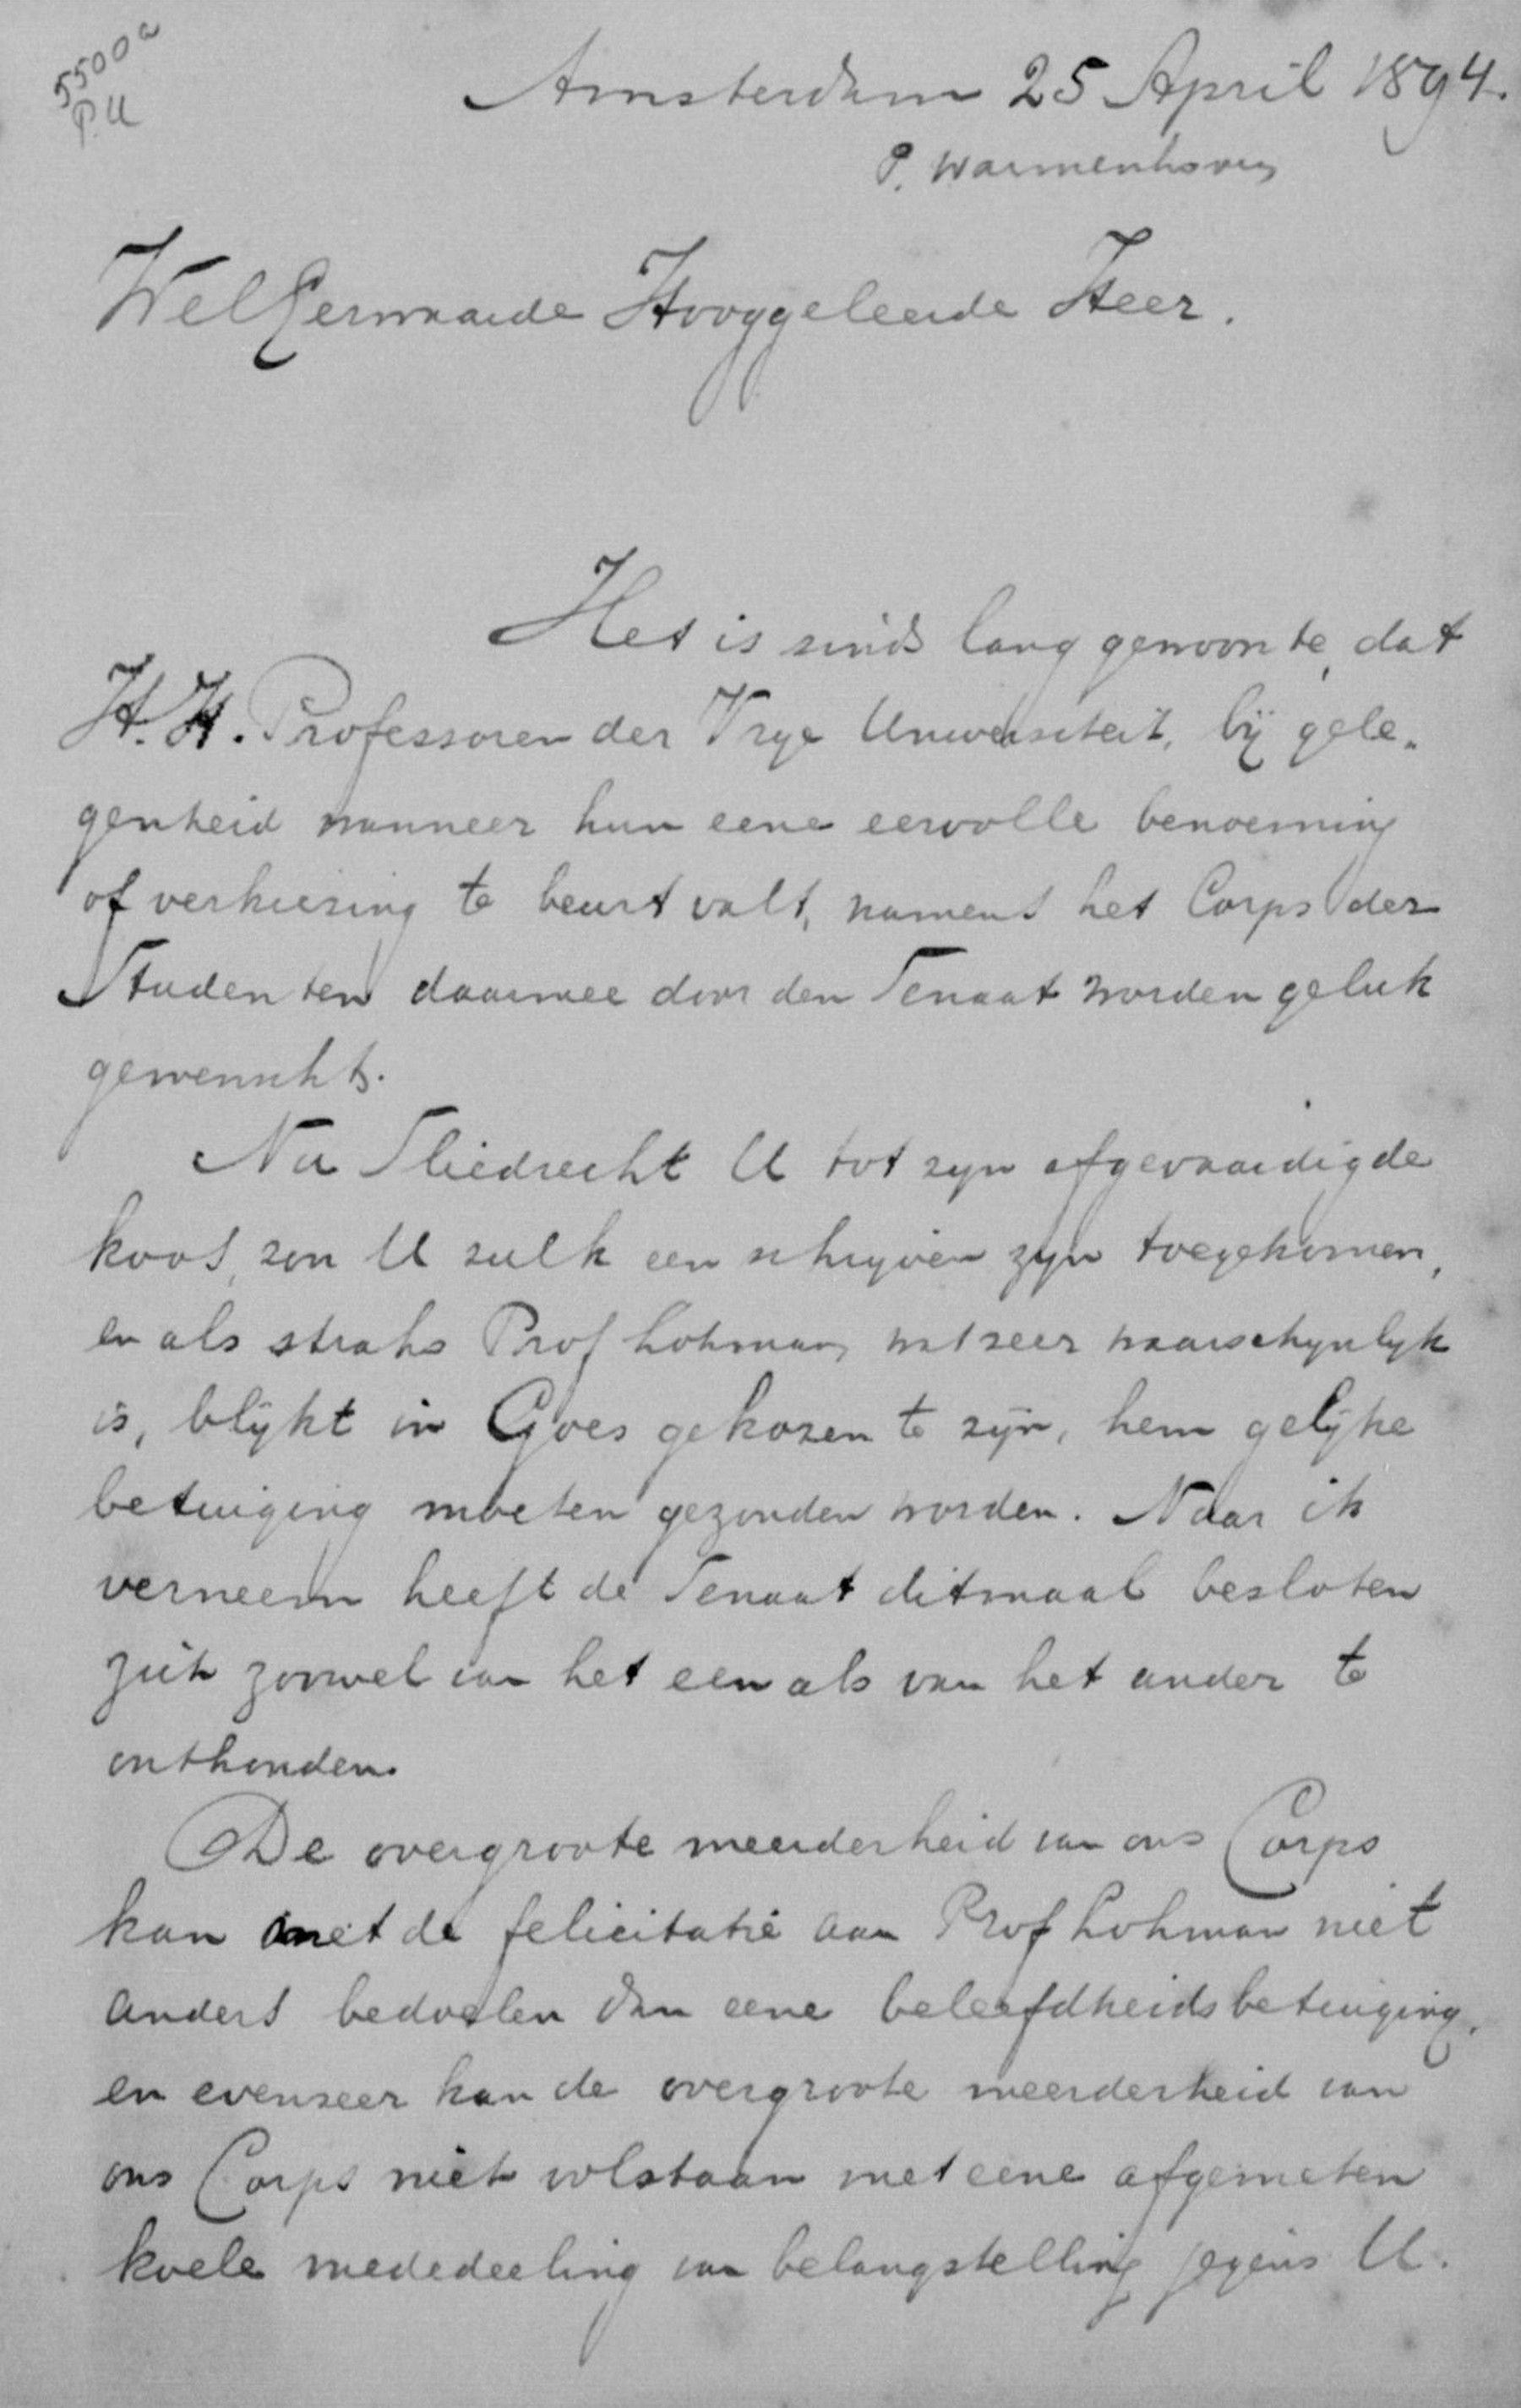 5500a
P.U
Amsterdam 25 April 1894.
P. Warmenhoven
WelEerwaarde Hooggeleerde Heer.
Het is sinds lang gewoonte, dat
H.H. Professoren der Vrye Universiteit, bij gele-
genheid wanneer hun eene eervolle benoeming
of verkiezing te beurt valt, namens het Corps der
Studenten daarmee door den Senaat worden geluk
gewenscht.
Nu Sliedrecht U tot zyn afgevaardigde
koos, zou U zulk een schryven zyn toegekomen,
en als straks Prof Lohman, wat zeer waarschynlyk
is, blijkt in Goes gekozen te zijn, hem gelijke
betuiging moeten gezonden worden. Naar ik
verneem heeft de Senaat ditmaal besloten
zich zoowel van het een als van het ander te
onthouden.
De overgroote meerderheid van ons Corps
kan met de felicitatie aan Prof Lohman niet
anders bedoelen dan eene beleefdheidsbetuiging,
en evenzeer kan de overgroote meerderheid van
ons Corps niet volstaan met eene afgemeten
koele mededeeling van belangstelling jegens U.